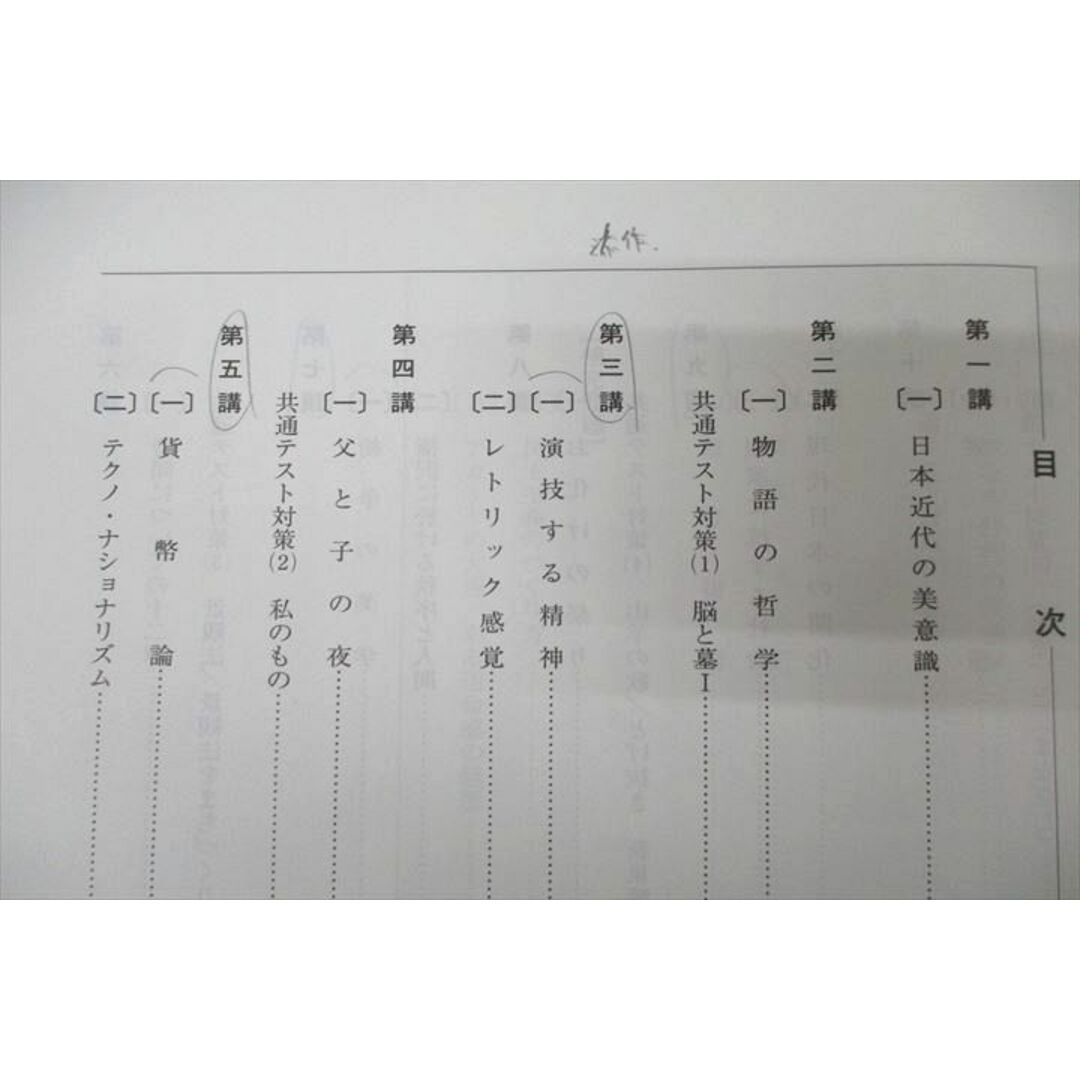 添作.
目次
第一講
〔一〕 日本近代の美意識
第二講
〔一〕 物語の哲学
共通テスト対策(1) 脳と墓Ⅰ
第三講
〔一〕 演技する精神
〔二〕 レトリック感覚
第四講
〔一〕 父と子の夜
共通テスト対策(2) 私のもの
第五講
〔一〕 貨幣論
〔二〕 テクノ・ナショナリズム